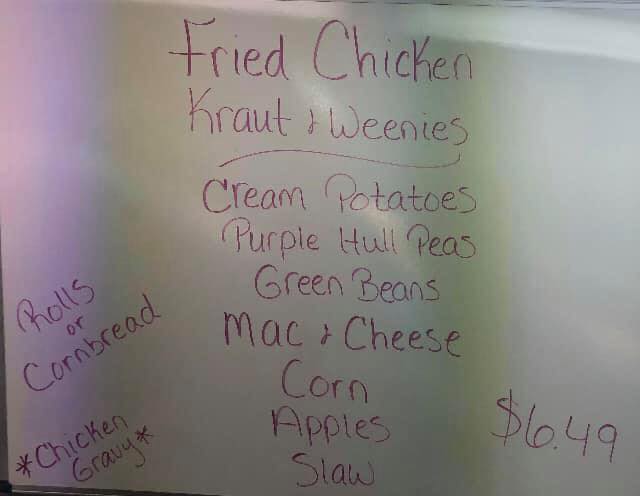 Fried Chicken
Kraut & Weenies
Cream Potatoes
Purple Hull Peas
Green Beans
Mac & Cheese
Corn
Apples
Slaw
Rolls
or
Cornbread
*Chicken
Gravy*
$6.49